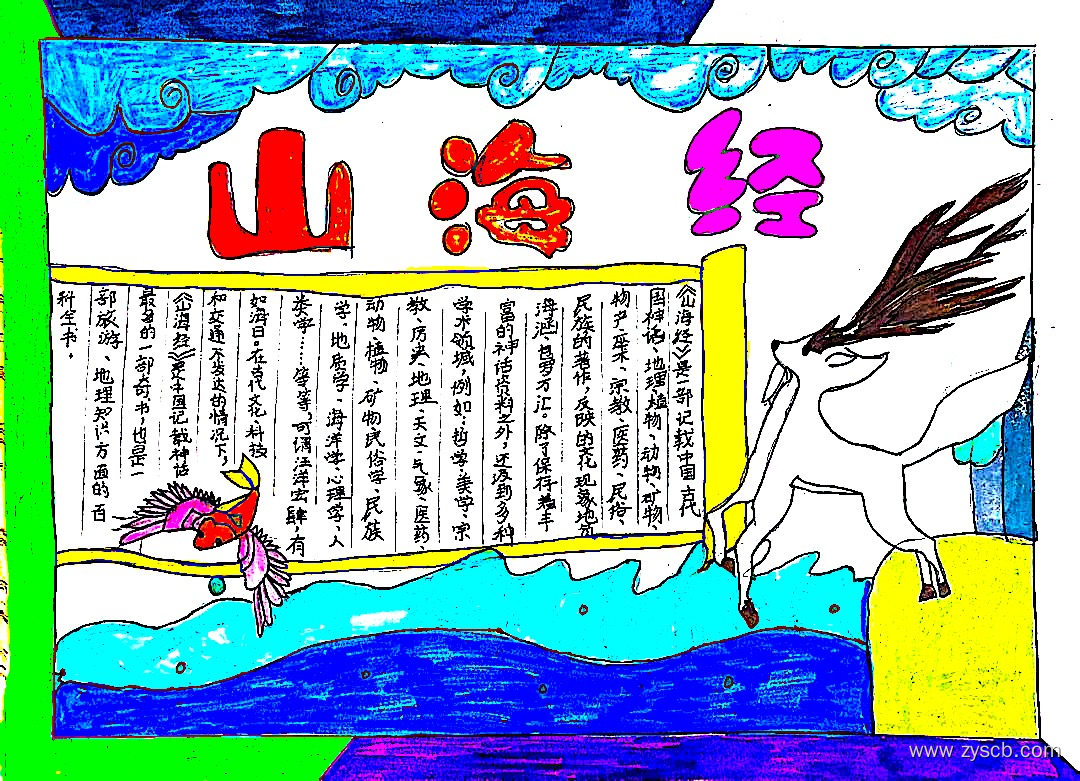 山海经
《山海经》是一部记载中国古代
国神话、地理、植物、动物、矿物、
物产、巫术、宗教、医药、民俗、
民族的著作,反映的文化现象地负
海涵、包罗万汇。除了保存着丰
富的神话资料之外,还涉到多种
学术领域,例如:哲学、美学、宗
教、历史、地理、天文、气象、医药、
动物、植物、矿物民俗学、民族
学、地质学、海洋学、心理学、人
类学……等等,可谓汪洋宏肆,有
如海日。在古代文化、科技
和交通不发达的情况下,
《山海经》是中国记载神话
最多的一部奇书,也是一
部旅游、地理知识方面的百
科全书。
www.zyscb.com